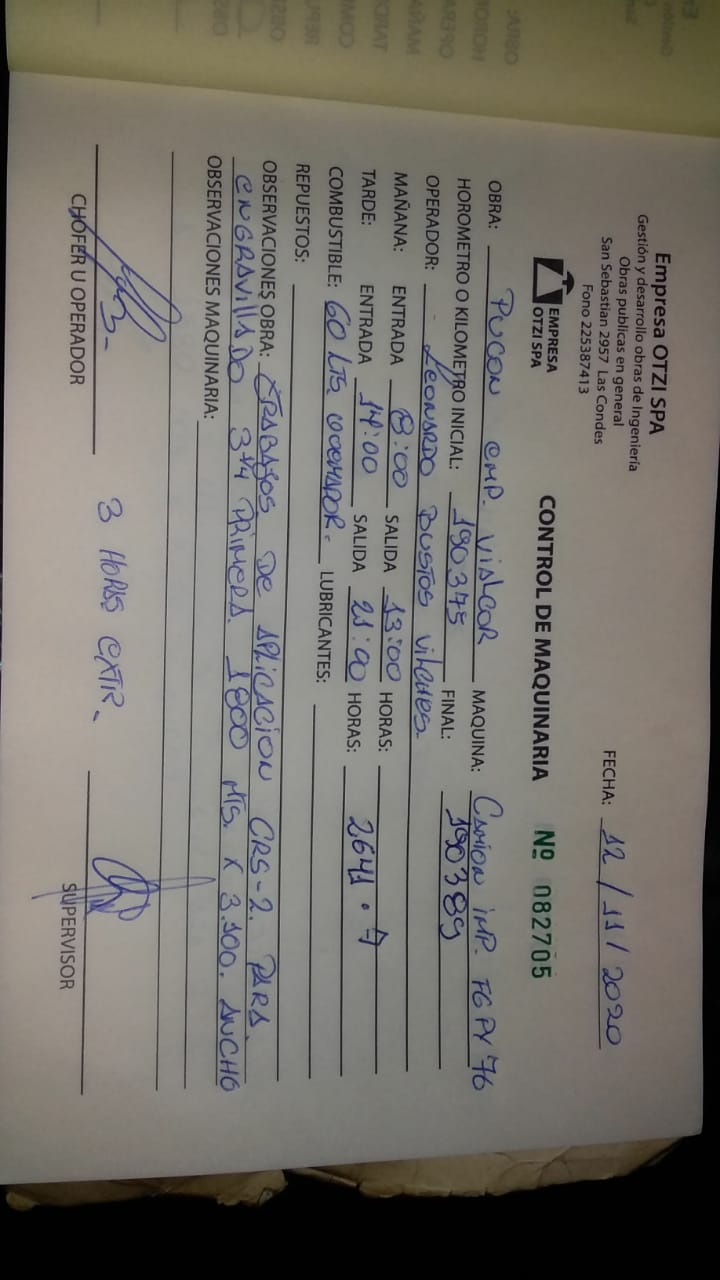 Empresa OTZI SPA
Gestión y desarrollo obras de Ingeniería
Obras publicas en general
San Sebastian 2957 Las Condes
Fono 225387413
EMPRESA
OTZI SPA
FECHA: 12 / 11 / 2020
CONTROL DE MAQUINARIA Nº 082705
OBRA: PUCON EMP. VIALCOR MAQUINA: CAMION IMP. FGPY 76
HOROMETRO O KILOMETRO INICIAL: 190375 FINAL: 190389
OPERADOR: LEONARDO BUSTOS VILCHES.
MAÑANA: ENTRADA 8:00 SALIDA 13:00 HORAS:
TARDE: ENTRADA 14:00 SALIDA 21:00 HORAS: 2641.7
COMBUSTIBLE: 60 LTS. QUEMADOR. LUBRICANTES:
REPUESTOS:
OBSERVACIONES OBRA: TRABAJOS DE APLICACION CRS-2. PARA.
ENGRAVILLADO 3/4 PRIMERA. 1800 MTS. X 3.100. ANCHO
OBSERVACIONES MAQUINARIA:
3 HORAS EXTR.
CHOFER U OPERADOR SUPERVISOR